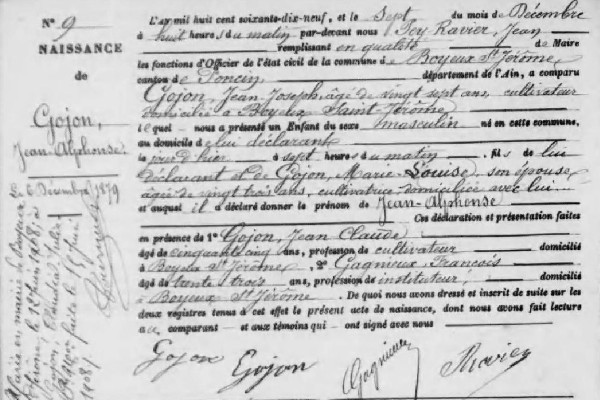 N° 9
NAISSANCE
de
Gojon,
Jean-Alphonse.
L'an mil huit cent soixante-dix-neuf, et le Sept du mois de Décembre
à huit heures du matin par-devant nous Pey Ravier, Jean
remplissant en qualité de Maire
les fonctions d'Officier de l'état civil de la commune de Boyeux St Jérôme,
canton de Poncin département de l'Ain, a comparu
Gojon, Jean-Joseph, âgé de vingt sept ans, cultivateur
domicilié à Boyeux Saint Jérôme
lequel nous a présenté un Enfant du sexe masculin né en cette commune,
au domicile de lui déclarant
le jour d'hier à sept heures du matin, fils de lui
déclarant et de Gojon, Marie-Louise, son épouse,
âgée de vingt trois ans, cultivatrice domiciliée avec lui
et auquel il a déclaré donner le prénom de Jean-Alphonse
Ces déclaration et présentation faites
en présence de 1° Gojon, Jean Claude, domicilié
âgé de cinquante cinq ans, profession de cultivateur
à Boyeux St Jérôme, 2° Gagnieux François
âgé de trente trois ans, profession de instituteur, domicilié
à Boyeux St Jérôme. De quoi nous avons dressé et inscrit de suite sur les
deux registres tenus à cet effet le présent acte de naissance, dont nous avons fait lecture
au comparant et aux témoins qui ont signé avec nous
Gojon Gojon Gagnieux Ravier
6 Décembre 1879
Marié en mairie de Boyeux
St Jérôme, le 1er juin 1908, à
Gojon, Claudia